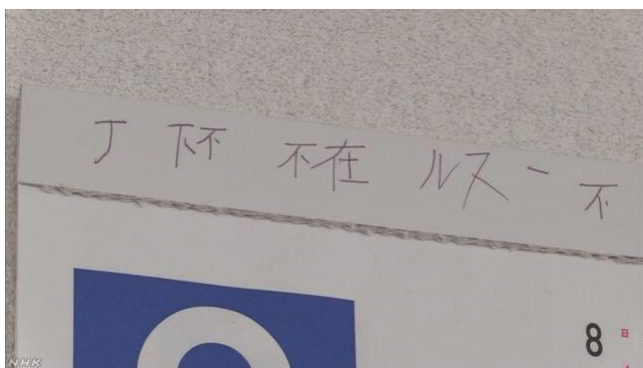 丁 下不 不在 ルスー 不
8 日
NHK